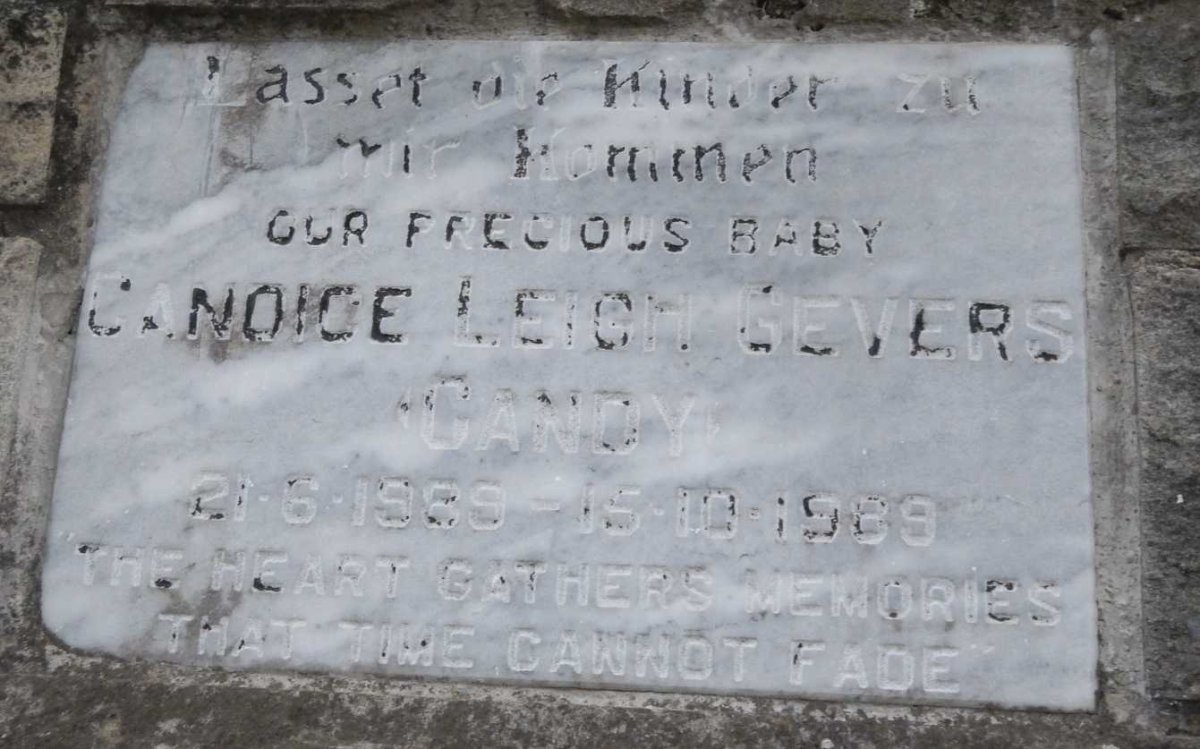 Lasset die Kinder zu
mir Kommen
OUR PRECIOUS BABY
CANDICE LEIGH GEVERS
(CANDY)
21·6·1989 - 15·10·1989
"THE HEART GATHERS MEMORIES
THAT TIME CANNOT FADE"